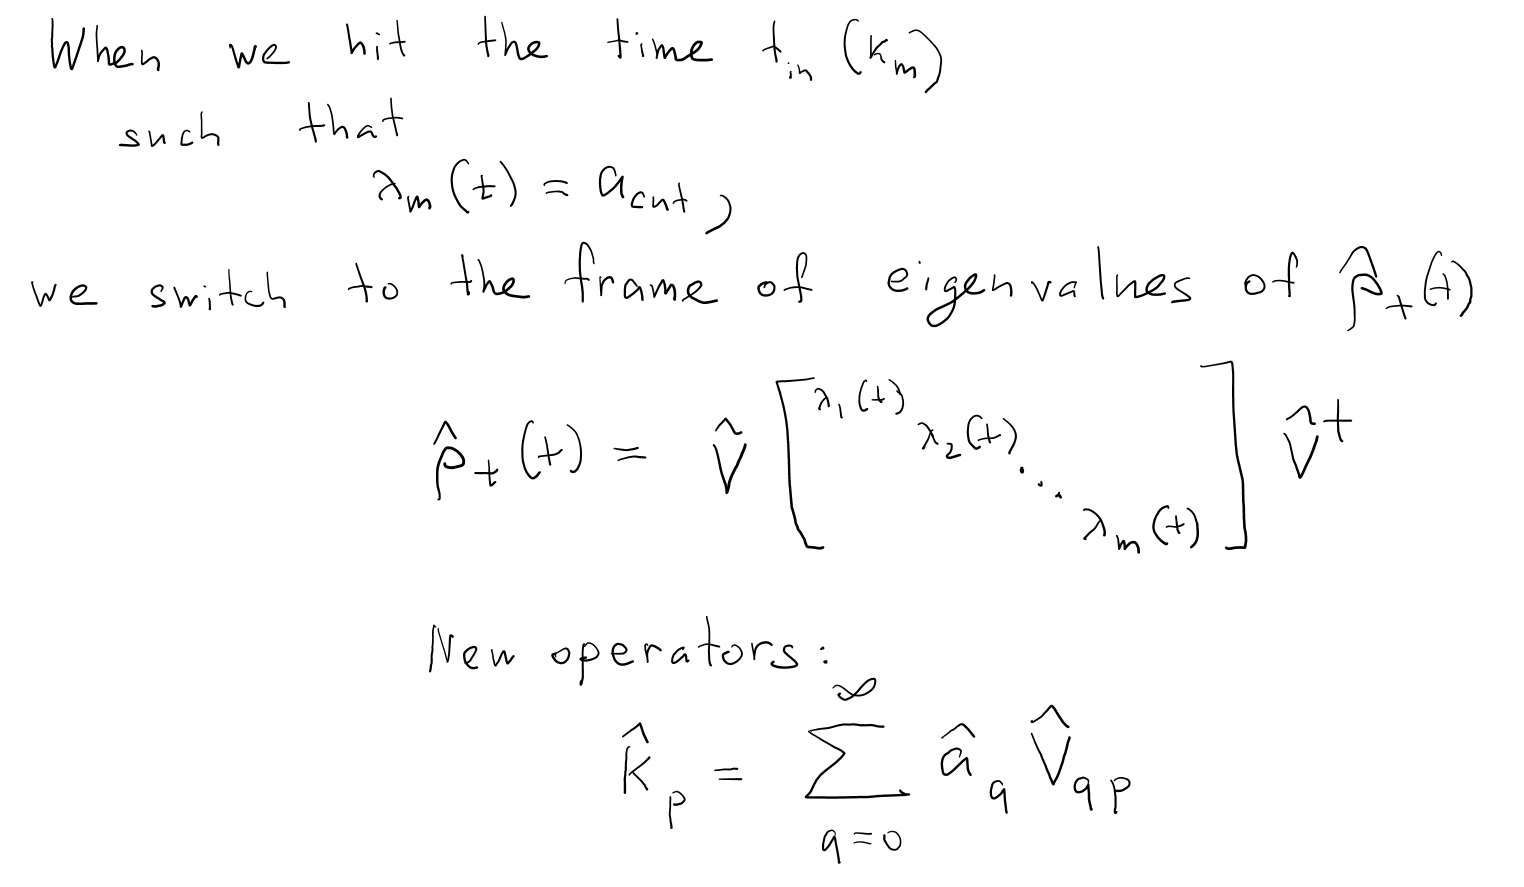 When we hit the time t_in (k_m)
such that
λ_m (t) = a_cut,
we switch to the frame of eigenvalues of ρ̂_+(t)
ρ̂_+ (t) = V̂ [ λ_1(t) λ_2(t) ⋱ λ_m(t) ] V̂^†
New operators:
k̂_p = ∑_{q=0}^{∞} â_q V̂_{qp}